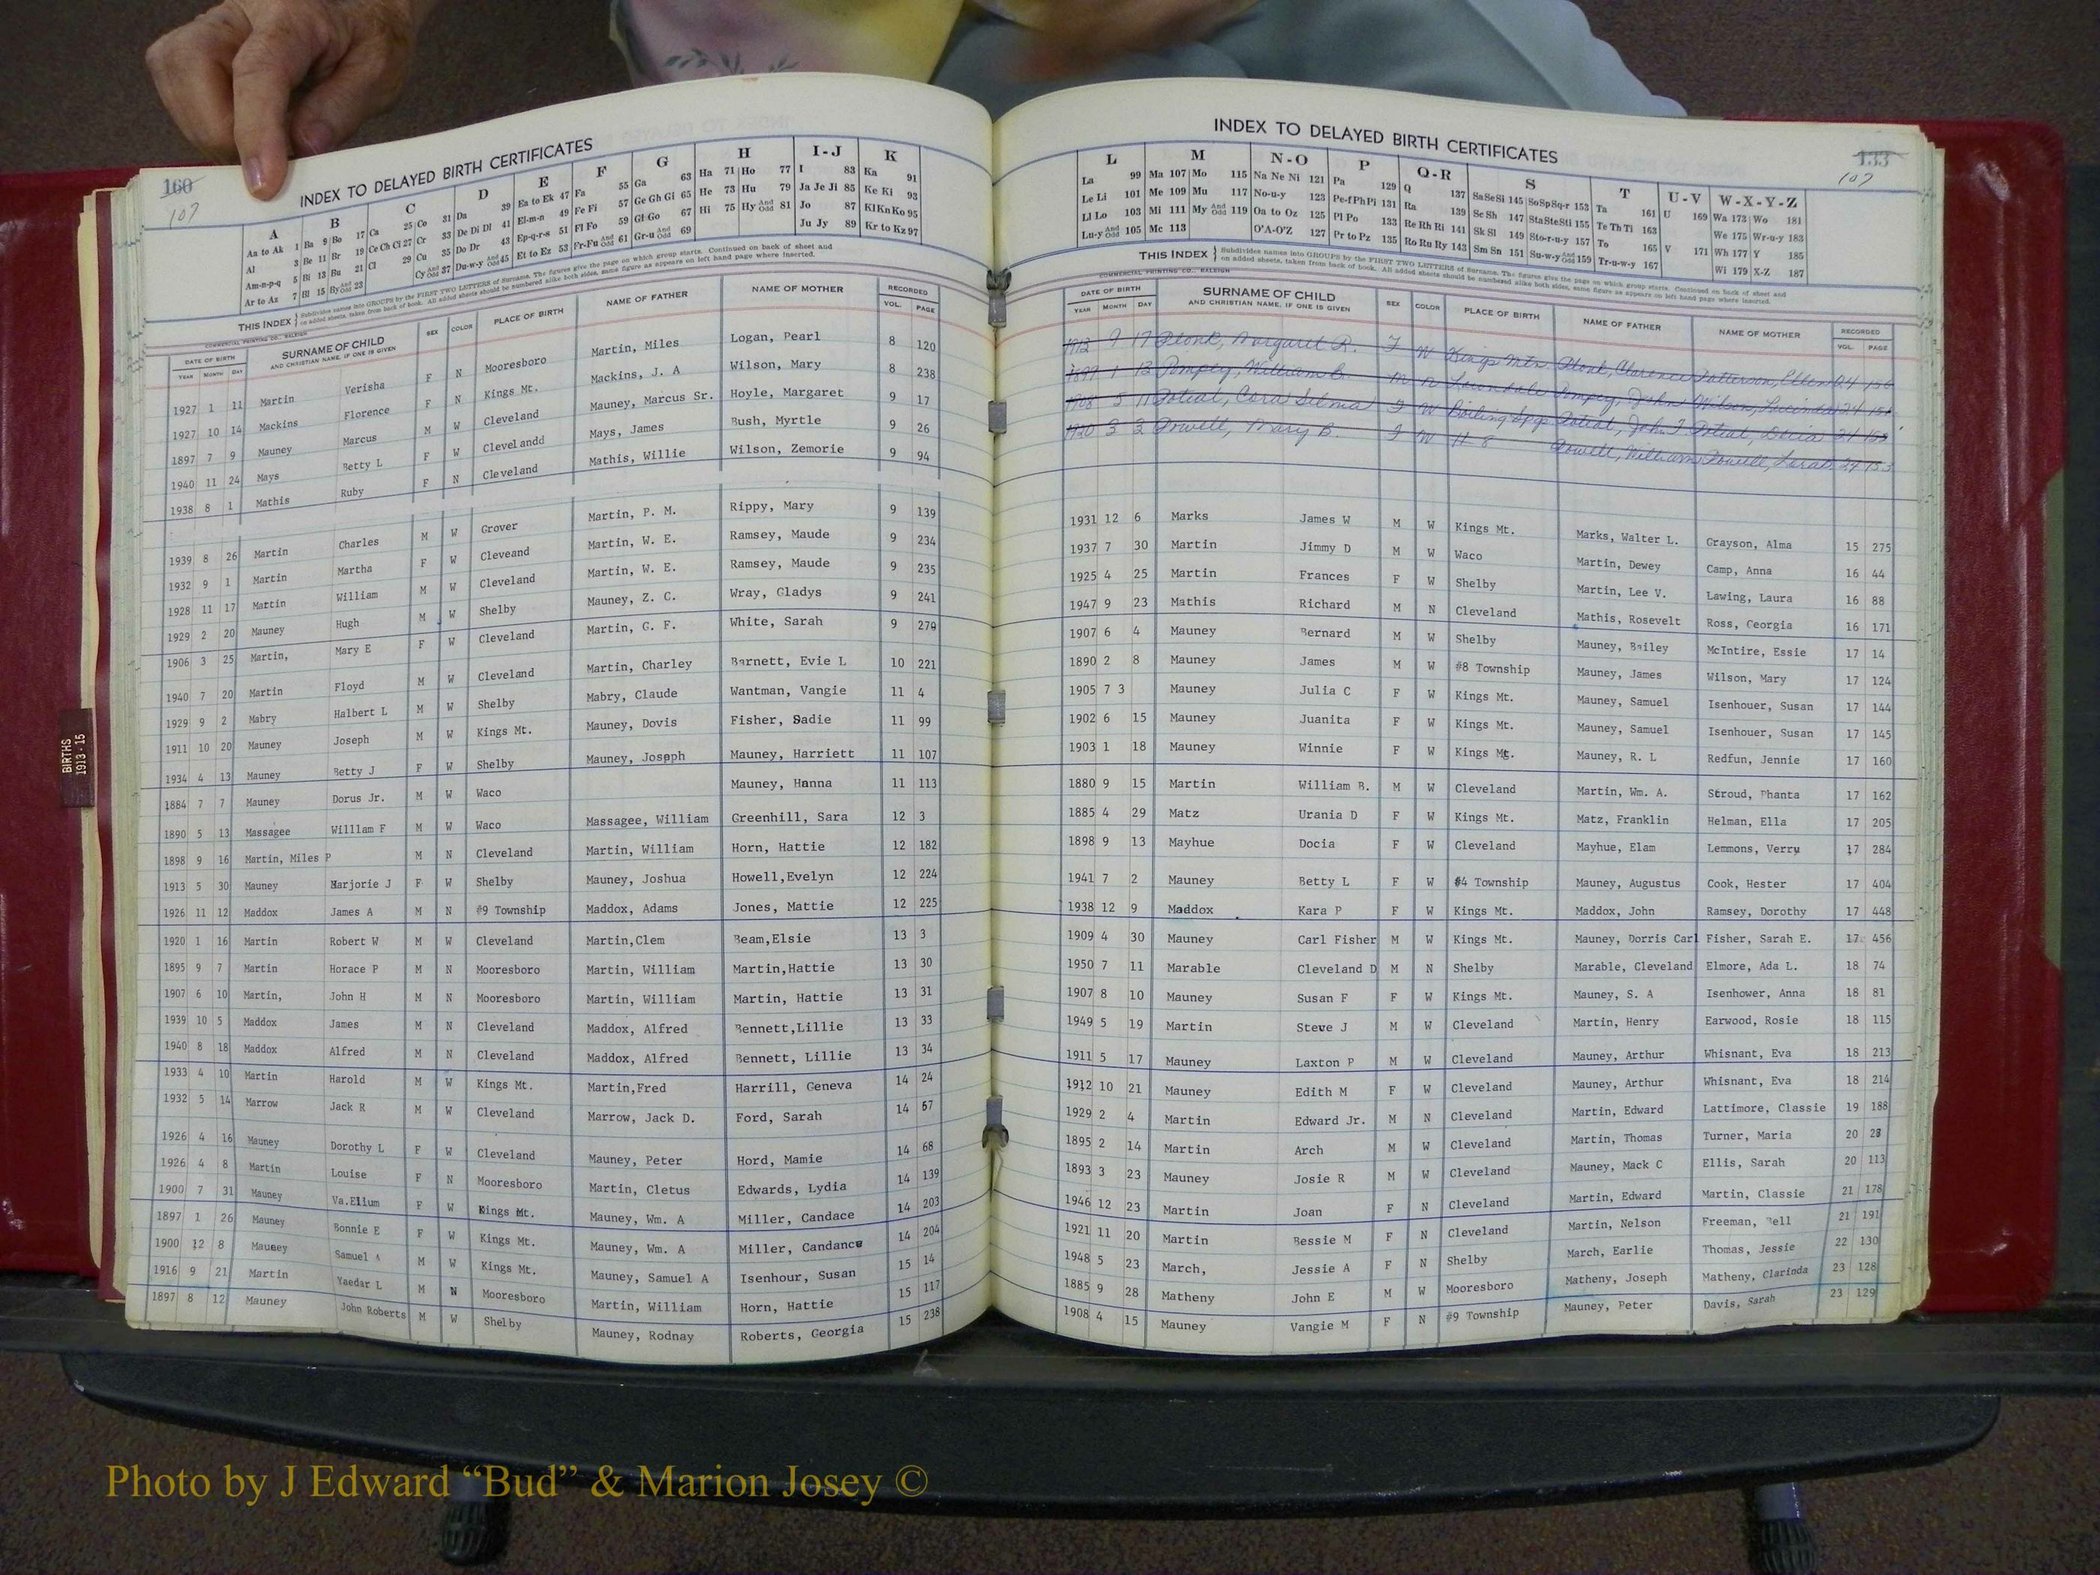 160
107
INDEX TO DELAYED BIRTH CERTIFICATES
A B C D E F G H I-J K
Aa to Ak 1 Ba 9 Bo 17 Ca 25 Co 31 Da 39 Ea to Ek 47 Fa 55 Ga 63 Ha 71 Ho 77 I 83 Ka 91
Al 3 Be 11 Br 19 Ce Ch Ci 27 Cr 33 De Di Dl 41 El-m-n 49 Fe Fi 57 Ge Gh Gi 65 He 73 Hu 79 Ja Je Ji 85 Ke Ki 93
Am-n-p-q 5 Bi 13 Bu 21 Cl 29 Cu 35 Do Dr 43 Ep-q-r-s 51 Fl Fo 59 Gl Go 67 Hi 75 Hy And Odd 81 Jo 87 Kl Kn Ko 95
Ar to Az 7 Bl 15 By And Odd 23 Cy And Odd 37 Du-w-y And Odd 45 Et to Ez 53 Fr-Fu And Odd 61 Gr-u And Odd 69 Ju Jy 89 Kr to Kz 97
THIS INDEX Subdivides names into GROUPS by the FIRST TWO LETTERS of Surname. The figures give the page on which group starts. Continued on back of sheet and
on added sheets, taken from back of book. All added sheets should be numbered alike both sides, same figure as appears on left hand page where inserted.
COMMERCIAL PRINTING CO., RALEIGH
DATE OF BIRTH SURNAME OF CHILD SEX COLOR PLACE OF BIRTH NAME OF FATHER NAME OF MOTHER RECORDED
YEAR MONTH DAY AND CHRISTIAN NAME, IF ONE IS GIVEN VOL. PAGE
1927 1 11 Martin Verisha F N Mooresboro Martin, Miles Logan, Pearl 8 120
1927 10 14 Mackins Florence F N Kings Mt. Mackins, J. A Wilson, Mary 8 238
1897 7 9 Mauney Marcus M W Cleveland Mauney, Marcus Sr. Hoyle, Margaret 9 17
1940 11 24 Mays Betty L F W Clevelandd Mays, James Bush, Myrtle 9 26
1938 8 1 Mathis Ruby F N Cleveland Mathis, Willie Wilson, Zemorie 9 94
1939 8 26 Martin Charles M W Grover Martin, P. M. Rippy, Mary 9 139
1932 9 1 Martin Martha F W Cleveand Martin, W. E. Ramsey, Maude 9 234
1928 11 17 Martin William M W Cleveland Martin, W. E. Ramsey, Maude 9 235
1929 2 20 Mauney Hugh M W Shelby Mauney, Z. C. Wray, Gladys 9 241
1906 3 25 Martin, Mary E F W Cleveland Martin, G. F. White, Sarah 9 279
1940 7 20 Martin Floyd M W Cleveland Martin, Charley Barnett, Evie L 10 221
1929 9 2 Mabry Halbert L M W Shelby Mabry, Claude Wantman, Vangie 11 4
1911 10 20 Mauney Joseph M W Kings Mt. Mauney, Dovis Fisher, Sadie 11 99
1934 4 13 Mauney Betty J F W Shelby Mauney, Joseph Mauney, Harriett 11 107
1884 7 7 Mauney Dorus Jr. M W Waco Mauney, Hanna 11 113
1890 5 13 Massagee William F M W Waco Massagee, William Greenhill, Sara 12 3
1898 9 16 Martin, Miles P M N Cleveland Martin, William Horn, Hattie 12 182
1913 5 30 Mauney Harjorie J F W Shelby Mauney, Joshua Howell,Evelyn 12 224
1926 11 12 Maddox James A M N #9 Township Maddox, Adams Jones, Mattie 12 225
1920 1 16 Martin Robert W M W Cleveland Martin,Clem Beam,Elsie 13 3
1895 9 7 Martin Horace P M N Mooresboro Martin, William Martin,Hattie 13 30
1907 6 10 Martin, John H M N Mooresboro Martin, William Martin, Hattie 13 31
1939 10 5 Maddox James M N Cleveland Maddox, Alfred Bennett,Lillie 13 33
1940 8 18 Maddox Alfred M N Cleveland Maddox, Alfred Bennett, Lillie 13 34
1933 4 10 Martin Harold M W Kings Mt. Martin,Fred Harrill, Geneva 14 24
1932 5 14 Marrow Jack R M W Cleveland Marrow, Jack D. Ford, Sarah 14 67
1926 4 16 Mauney Dorothy L F W Cleveland Mauney, Peter Hord, Mamie 14 68
1926 4 8 Martin Louise F N Mooresboro Martin, Cletus Edwards, Lydia 14 139
1900 7 31 Mauney Va.Ellum F W Kings Mt. Mauney, Wm. A Miller, Candace 14 203
1897 1 26 Mauney Bonnie E F W Kings Mt. Mauney, Wm. A Miller, Candance 14 204
1900 12 8 Mauney Samuel A M W Kings Mt. Mauney, Samuel A Isenhour, Susan 15 14
1916 9 21 Martin Yaedar L M N Mooresboro Martin, William Horn, Hattie 15 117
1897 8 12 Mauney John Roberts M W Shelby Mauney, Rodnay Roberts, Georgia 15 238
BIRTHS
1913-15
INDEX TO DELAYED BIRTH CERTIFICATES
133
107
L M N-O P Q-R S T U-V W-X-Y-Z
La 99 Ma 107 Mo 115 Na Ne Ni 121 Pa 129 Q 137 Sa Se Si 145 So Sp Sq-r 153 Ta 161 U 169 Wa 173 Wo 181
Le Li 101 Me 109 Mu 117 No-u-y 123 Pe-f Ph Pi 131 Ra 139 Sc Sh 147 Sta Ste Sti 155 Te Th Ti 163 We 175 Wr-u-y 183
Ll Lo 103 Mi 111 My And Odd 119 Oa to Oz 125 Pl Po 133 Re Rh Ri 141 Sk Sl 149 Sto-r-u-y 157 To 165 V 171 Wh 177 Y 185
Lu-y And Odd 105 Mc 113 O'A-O'Z 127 Pr to Pz 135 Ro Ru Ry 143 Sm Sn 151 Su-w-y And Odd 159 Tr-u-w-y 167 Wi 179 X-Z 187
THIS INDEX Subdivides names into GROUPS by the FIRST TWO LETTERS of Surname. The figures give the page on which group starts. Continued on back of sheet and
on added sheets, taken from back of book. All added sheets should be numbered alike both sides, same figure as appears on left hand page where inserted.
COMMERCIAL PRINTING CO., RALEIGH
DATE OF BIRTH SURNAME OF CHILD SEX COLOR PLACE OF BIRTH NAME OF FATHER NAME OF MOTHER RECORDED
YEAR MONTH DAY AND CHRISTIAN NAME, IF ONE IS GIVEN VOL. PAGE
1912 9 17 Plonk, Margaret R. F W Kings Mtn. Plonk, Clarence Patterson, Ellen 24 150
1899 1 13 Pompey, William B. M N Lawndale Pompey, John Wilson, Lucinda 24 151
1908 5 11 Poteat, Cora Selma F W Boiling Spgs Poteat, John T Poteat, 24 152
1920 3 2 Powell, Mary B. F W # 8 Powell, William Powell, Sarah 24 153
1931 12 6 Marks James W M W Kings Mt. Marks, Walter L. Grayson, Alma 15 275
1937 7 30 Martin Jimmy D M W Waco Martin, Dewey Camp, Anna 16 44
1925 4 25 Martin Frances F W Shelby Martin, Lee V. Lawing, Laura 16 88
1947 9 23 Mathis Richard M N Cleveland Mathis, Rosevelt Ross, Georgia 16 171
1907 6 4 Mauney Bernard M W Shelby Mauney, Bailey McIntire, Essie 17 14
1890 2 8 Mauney James M W #8 Township Mauney, James Wilson, Mary 17 124
1905 7 3 Mauney Julia C F W Kings Mt. Mauney, Samuel Isenhouer, Susan 17 144
1902 6 15 Mauney Juanita F W Kings Mt. Mauney, Samuel Isenhouer, Susan 17 145
1903 1 18 Mauney Winnie F W Kings Mt. Mauney, R. L Redfun, Jennie 17 160
1880 9 15 Martin William B. M W Cleveland Martin, Wm. A. Stroud, Phanta 17 162
1885 4 29 Matz Urania D F W Kings Mt. Matz, Franklin Helman, Ella 17 205
1898 9 13 Mayhue Docia F W Cleveland Mayhue, Elam Lemmons, Verru 17 284
1941 7 2 Mauney Betty L F W #4 Township Mauney, Augustus Cook, Hester 17 404
1938 12 9 Maddox Kara P F W Kings Mt. Maddox, John Ramsey, Dorothy 17 448
1909 4 30 Mauney Carl Fisher M W Kings Mt. Mauney, Dorris Carl Fisher, Sarah E. 17 456
1950 7 11 Marable Cleveland D M N Shelby Marable, Cleveland Elmore, Ada L. 18 74
1907 8 10 Mauney Susan F F W Kings Mt. Mauney, S. A Isenhower, Anna 18 81
1949 5 19 Martin Steve J M W Cleveland Martin, Henry Earwood, Rosie 18 115
1911 5 17 Mauney Laxton P M W Cleveland Mauney, Arthur Whisnant, Eva 18 213
1912 10 21 Mauney Edith M F W Cleveland Mauney, Arthur Whisnant, Eva 18 214
1929 2 4 Martin Edward Jr. M N Cleveland Martin, Edward Lattimore, Classie 19 188
1895 2 14 Martin Arch M W Cleveland Martin, Thomas Turner, Maria 20 28
1893 3 23 Mauney Josie R M W Cleveland Mauney, Mack C Ellis, Sarah 20 113
1946 12 23 Martin Joan F N Cleveland Martin, Edward Martin, Classie 21 178
1921 11 20 Martin Bessie M F N Cleveland Martin, Nelson Freeman, Bell 21 191
1948 5 23 March, Jessie A F N Shelby March, Earlie Thomas, Jessie 22 130
1885 9 28 Matheny John E M W Mooresboro Matheny, Joseph Matheny, Clarinda 23 128
1908 4 15 Mauney Vangie M F N #9 Township Mauney, Peter Davis, Sarah 23 129
Photo by J Edward “Bud” & Marion Josey ©